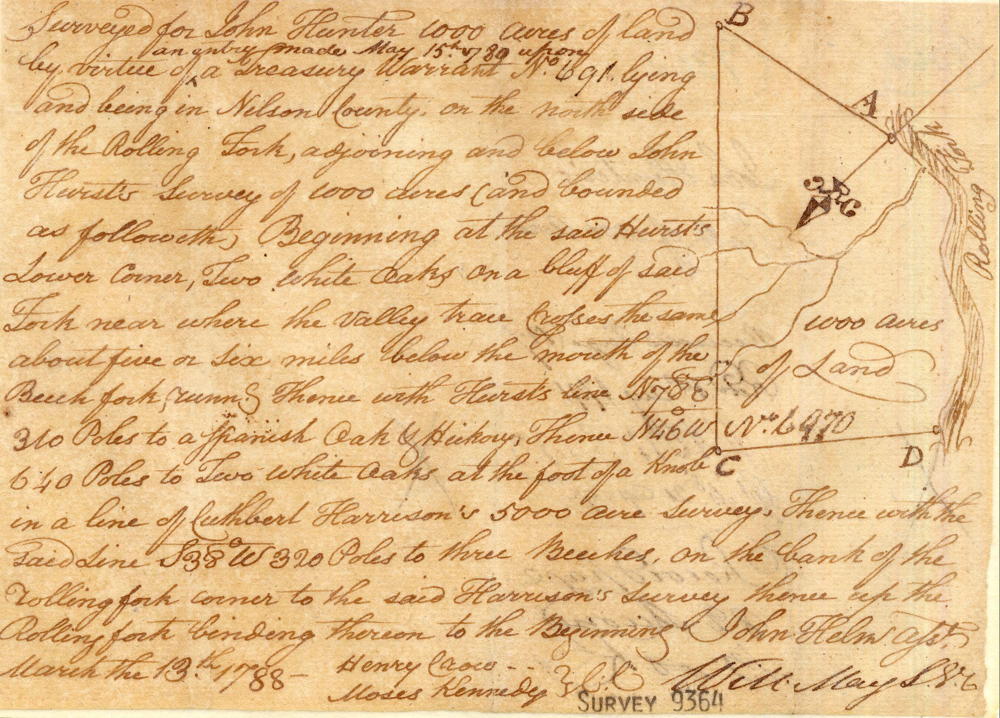 Surveyed for John Hunter 1000 acres of land
an entry made May 15th 1780 upon
by virtue of ^ a Treasury Warrant No. 691. lying
and being in Nelson County. on the north side
of the Rolling Fork, adjoining and below John
Hurst's Survey of 1000 acres (and bounded
as followeth) Beginning at the said Hurst's
Lower Corner, Two White Oaks on a bluff of said
Fork near where the valley trace Crosses the same
about five or Six miles below the mouth of the
Beech fork, runng Thence with Hursts line N78E
310 Poles to a Spanish Oak & Hickory, Thence N46W
640 Poles to Two White Oaks at the foot of a Knob
in a line of Cuthbert Harrison's 5000 acre Survey, Thence with the
said Line S38°W 320 Poles to three Beeches, on the bank of the
Rolling fork corner to the said Harrison's Survey thence up the
Rolling fork binding thereon to the Beginning John Helm Asst.
March the 13th 1788 - Henry Crow --
Moses Kennedy } C.C. Will: May S.N.C
SURVEY 9364
B
A
Rolling Fork
1000 acres
of Land
No. 6970
C
D